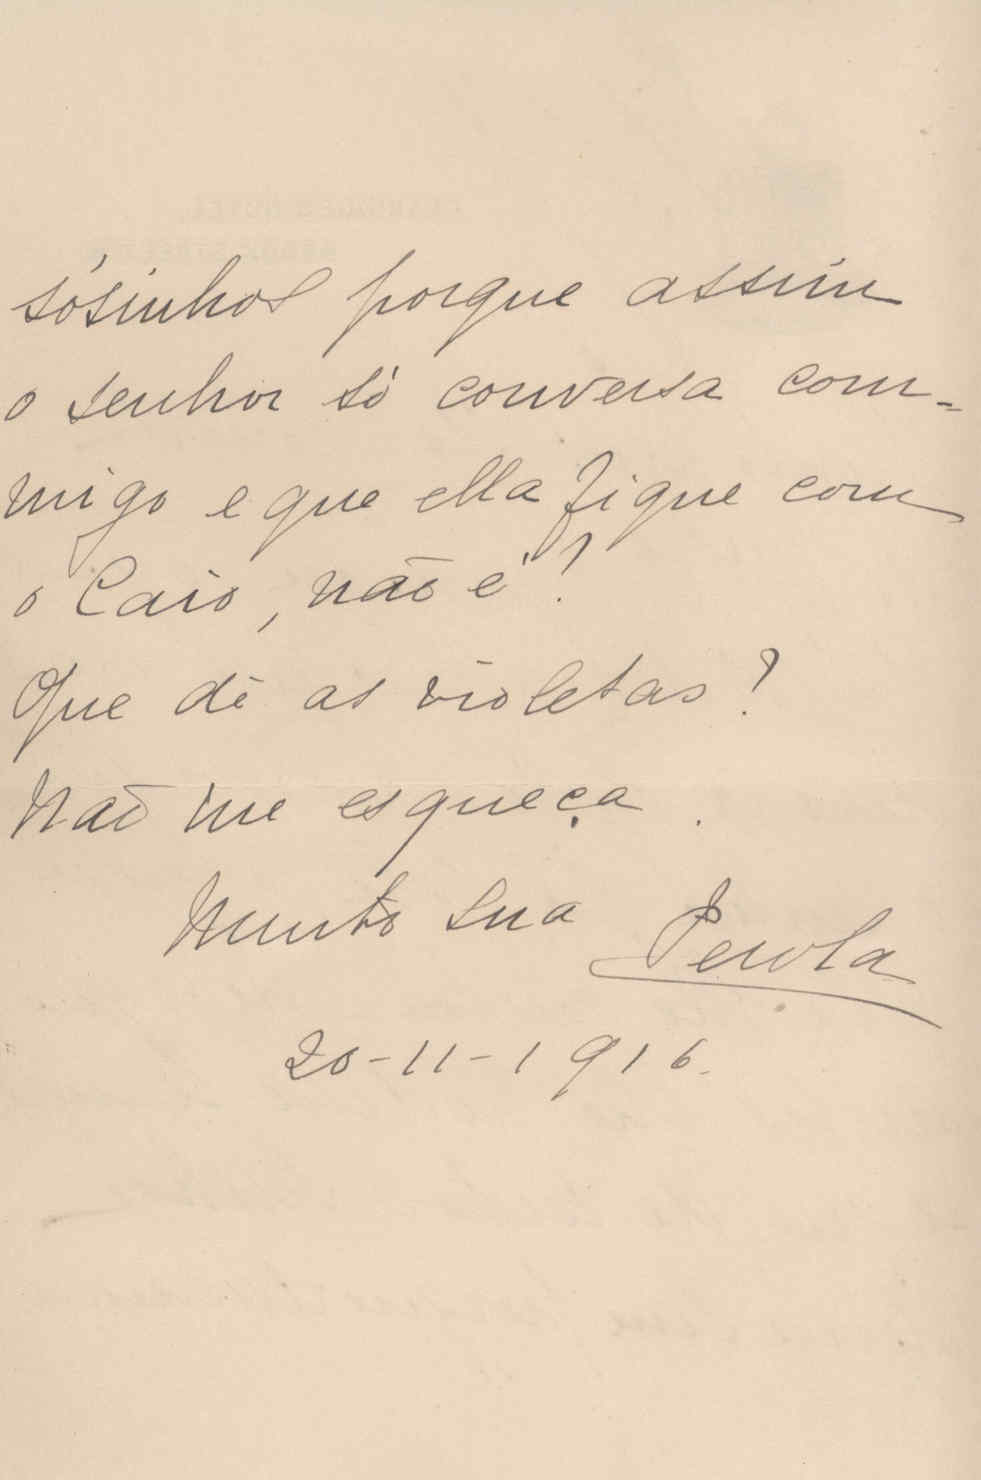 sósinhos porque assim
o senhor só conversa com=
migo e que ella fique com
o Caio, não é?
Que dê as violetas?
Não me esqueça.
Muito sua Perola
20-11-1916.